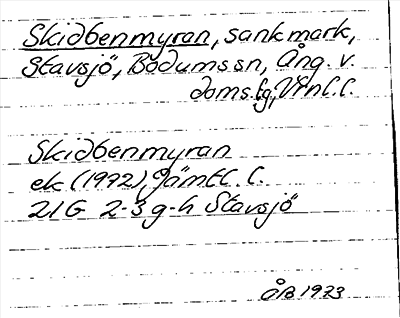 Skidbenmyran, sankmark,
Stavsjö, Bodums sn, Ång. v.
doms.lg, Vrnl. l.
Skidbenmyran
ek (1972), Jämtl. l.
21G 2-3 g-h Stavsjö
ÅB 1973